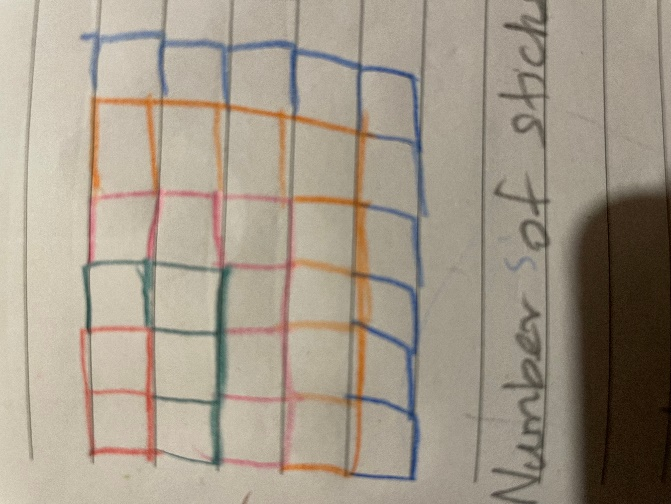 Numbers of stick